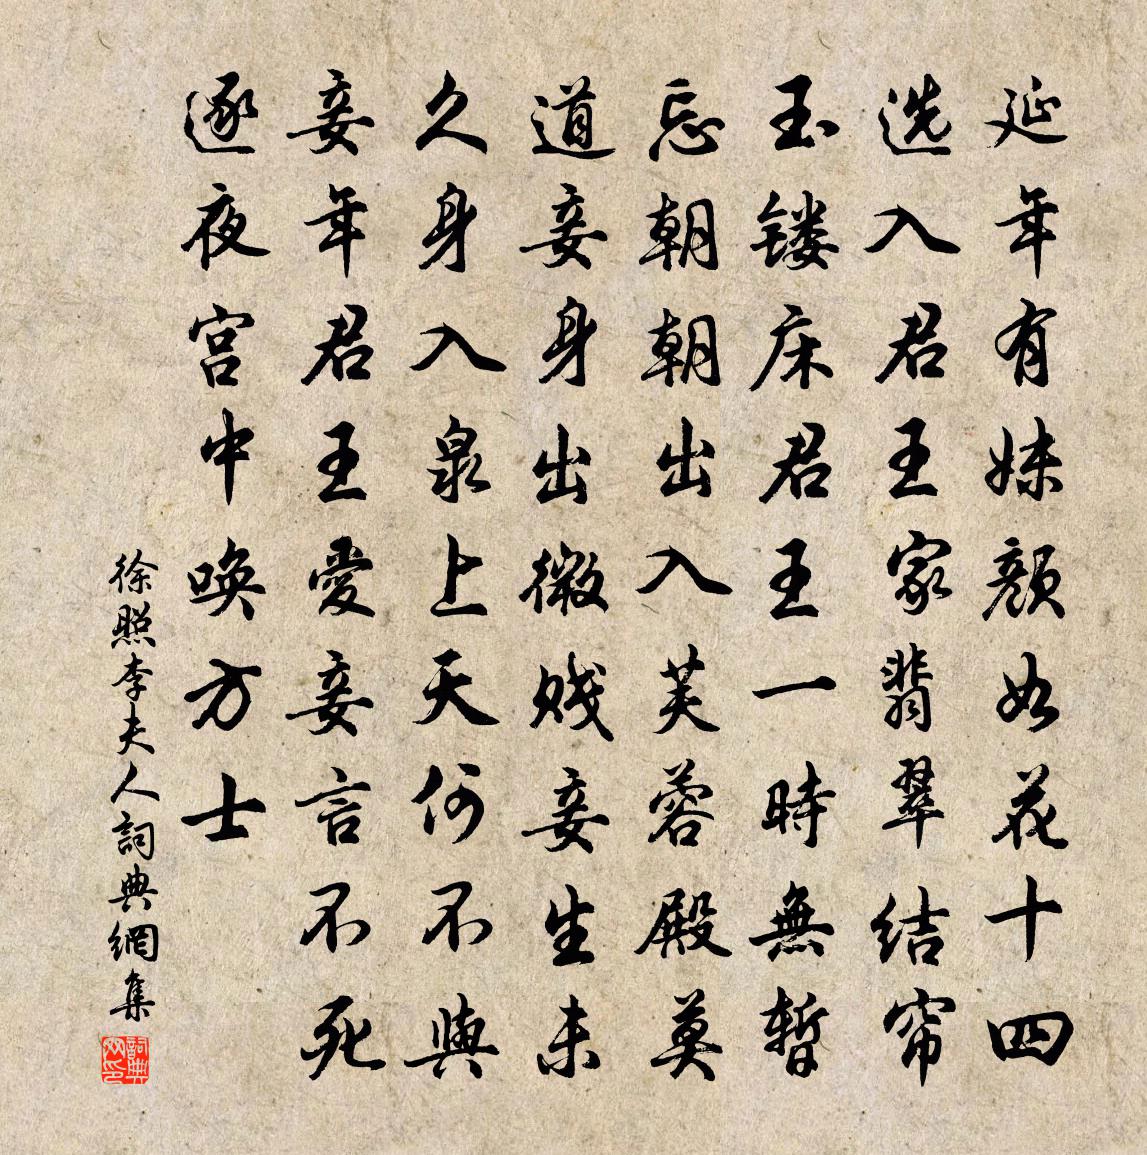 延年有妹顏如花十四
选入君王家翡翠结帘
玉镂床君王一時無暫
忘朝朝出入芙蓉殿莫
道妾身出微贱妾生未
久身入泉上天何不與
妾年君王愛妾言不死
逐夜宫中唤方士
徐照李夫人詞典網集
詞典网印